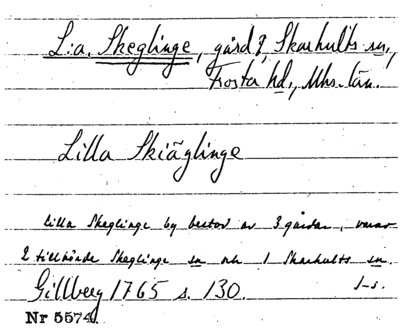 L:a. Skeglinge, gård 2, Skarhults sn,
Frosta hd., Mhs. län.
Lilla Skiäglinge
Lilla Skeglinge by bestod av 3 gårdar, varav
2 tillhörde Skeglinge sn och 1 Skarhults sn.
Gillberg 1765 s. 130.
Nr 5574.